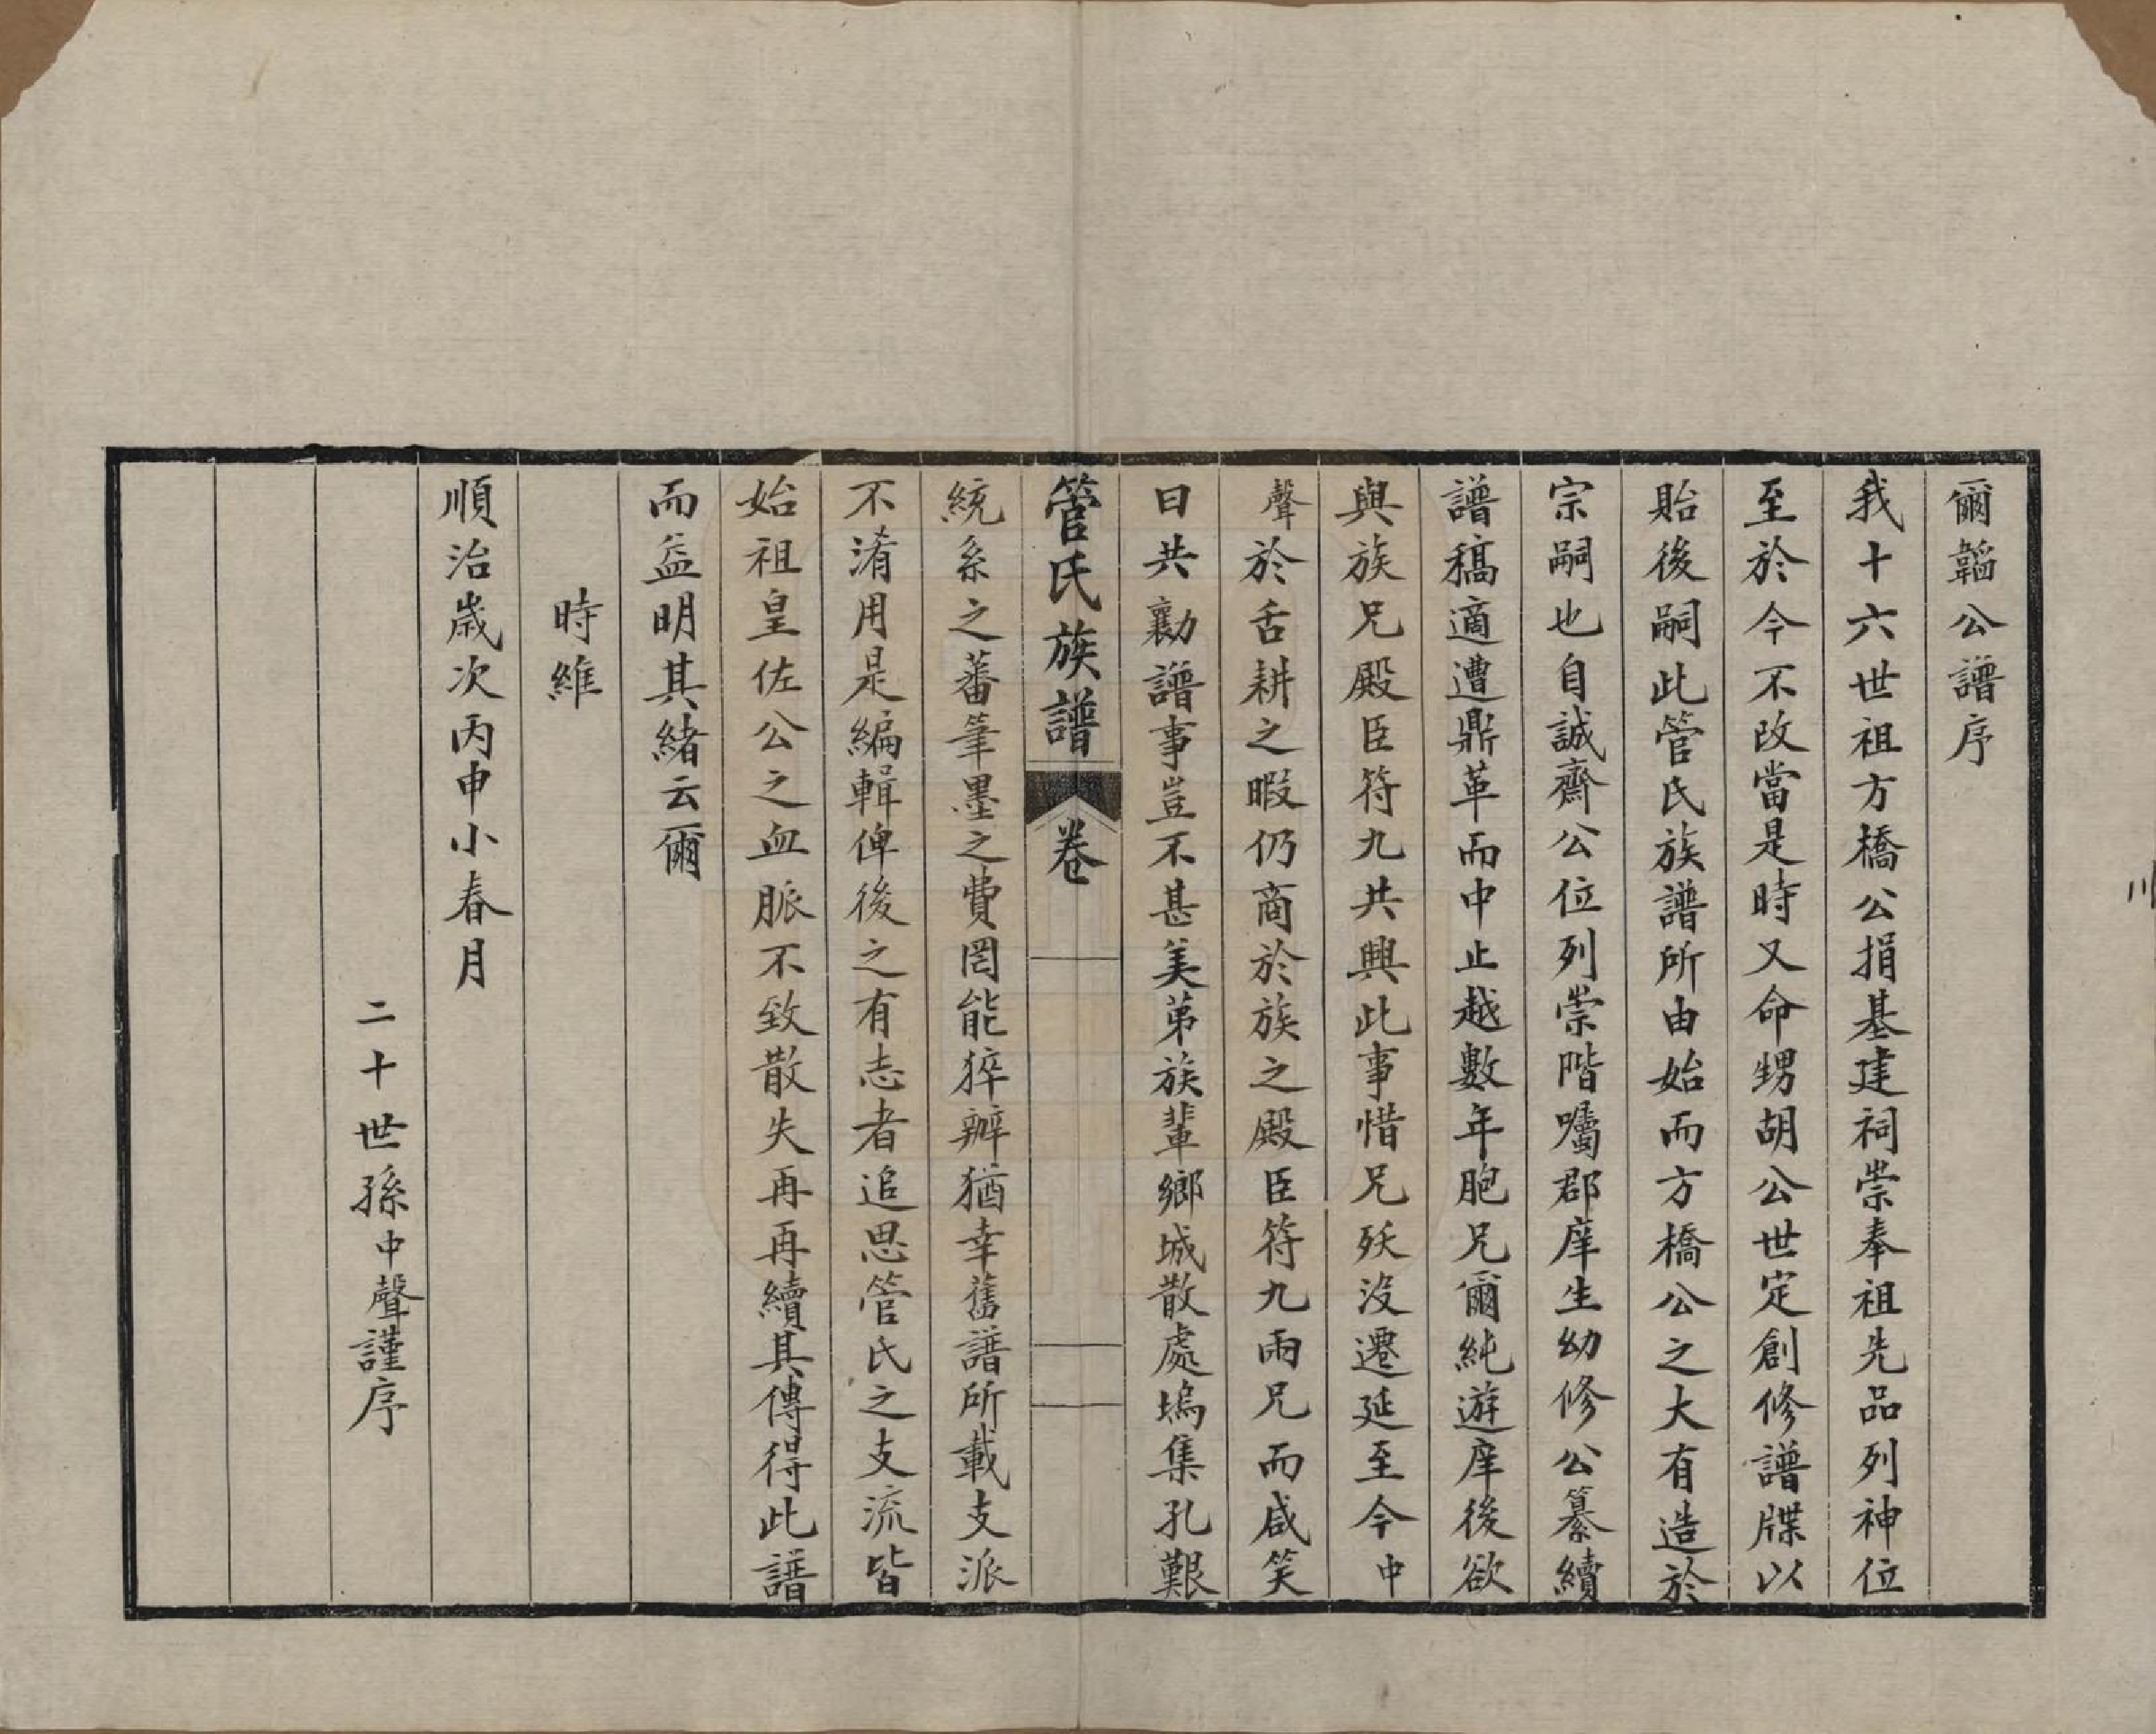 爾韜公譜序
我十六世祖方橋公捐基建祠崇奉祖先品列神位
至於今不改當是時又命甥胡公世定創修譜牒以
貽後嗣此管氏族譜所由始而方橋公之大有造於
宗嗣也自誠齋公位列崇階囑郡庠生幼修公纂續
譜稿適遭鼎革而中止越數年胞兄爾純遊庠後欲
與族兄殿臣符九共興此事惜兄殀沒遷延至今中
聲於舌耕之暇仍商於族之殿臣符九兩兄而咸笑
曰共勷譜事豈不甚美苐族輩鄉城散處塢集孔艱
管氏族譜 卷
統系之蕃筆墨之費罔能猝辦猶幸舊譜所載支派
不淆用是編輯俾後之有志者追思管氏之支流皆
始祖皇佐公之血脈不致散失再再續其傳得此譜
而益明其緒云爾
時維
順治歲次丙申小春月
二十世孫中聲謹序